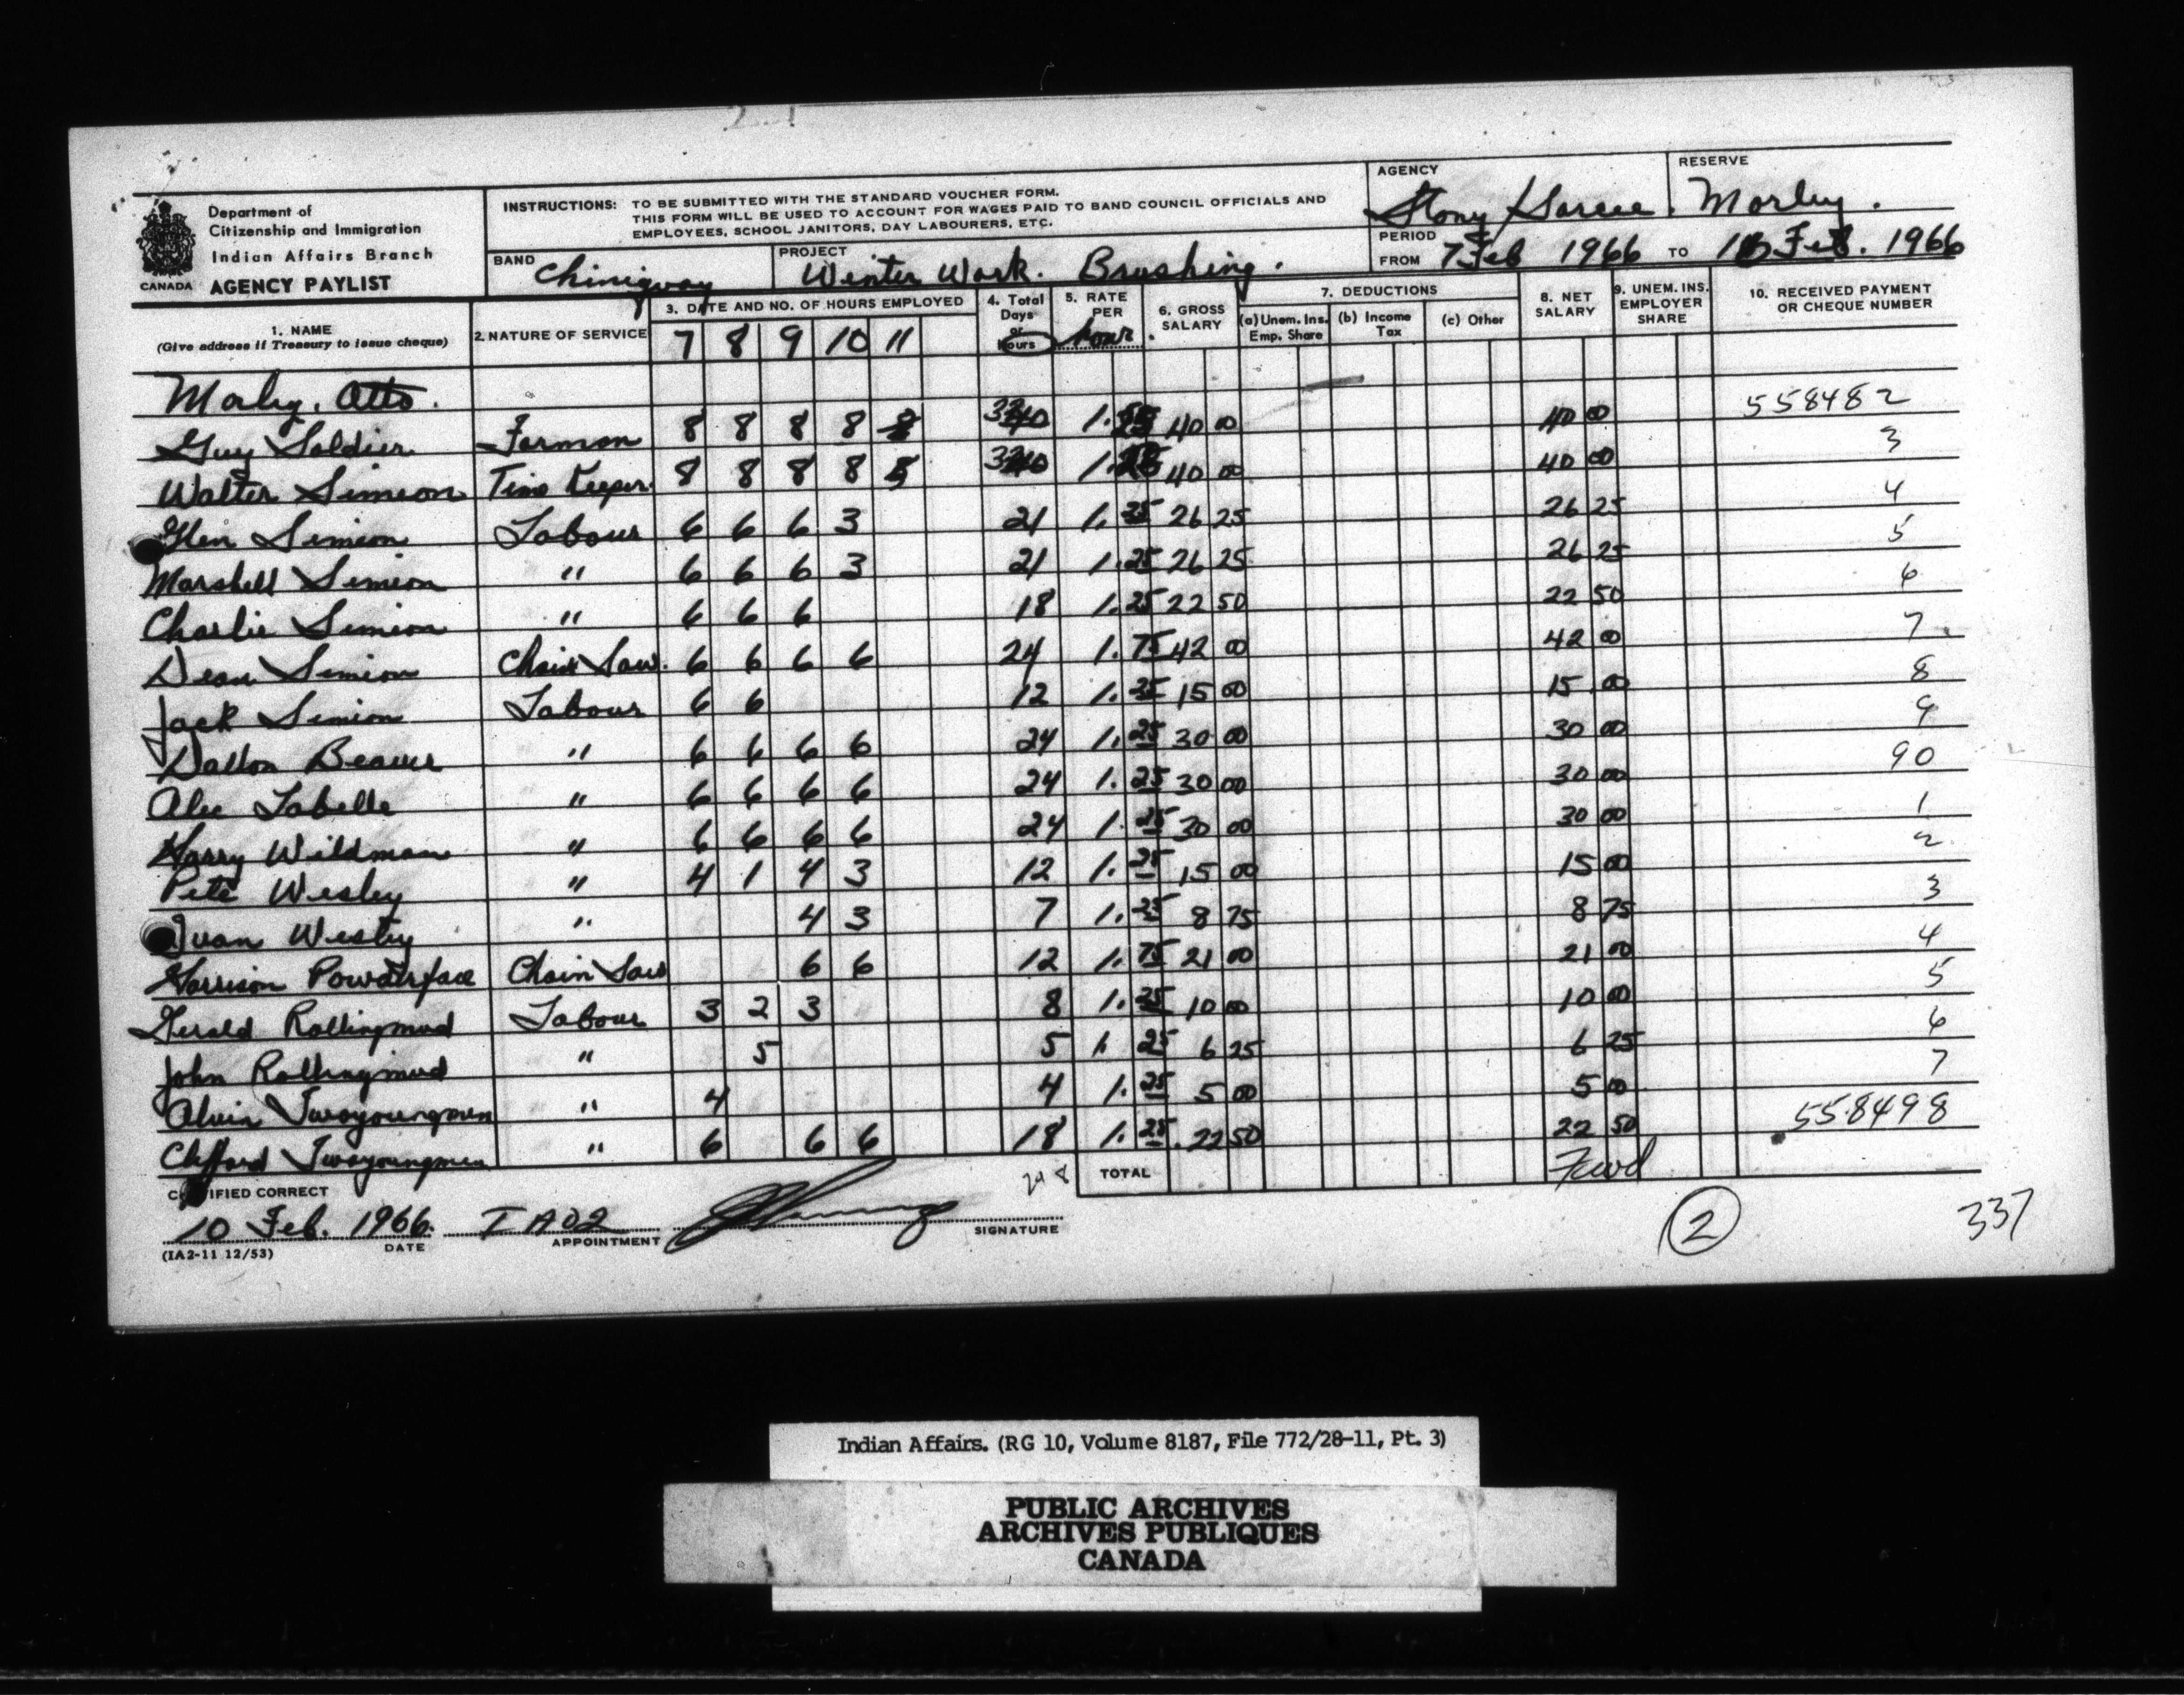 Department of
Citizenship and Immigration
Indian Affairs Branch
CANADA AGENCY PAYLIST
INSTRUCTIONS: TO BE SUBMITTED WITH THE STANDARD VOUCHER FORM.
THIS FORM WILL BE USED TO ACCOUNT FOR WAGES PAID TO BAND COUNCIL OFFICIALS AND
EMPLOYEES, SCHOOL JANITORS, DAY LABOURERS, ETC.
AGENCY Stony/Sarcee.
RESERVE Morley.
BAND Chiniquay
PROJECT Winter Work. Brushing.
PERIOD FROM 7 Feb 1966 TO Feb. 1966
1. NAME (Give address if Treasury to issue cheque)
2. NATURE OF SERVICE
3. DATE AND NO. OF HOURS EMPLOYED
7 8 9 10 11
4. Total Days or Hours
5. RATE PER hour.
6. GROSS SALARY
7. DEDUCTIONS
(a) Unem. Ins. Emp. Share
(b) Income Tax
(c) Other
8. NET SALARY
9. UNEM. INS. EMPLOYER SHARE
10. RECEIVED PAYMENT OR CHEQUE NUMBER
Morley. Otto.
Guy Soldier Forman 8 8 8 8 1. 40 00 40 00 558482
Walter Simeon Time Keeper. 8 8 8 8 1. 40 00 40 00 3
Glen Simeon Labour 6 6 6 3 21 1.25 26 25 26 25 4
Marshell Simeon " 6 6 6 3 21 1.25 26 25 26 25 5
Charlie Simeon " 6 6 6 18 1.25 22 50 22 50 6
Dean Simeon Chain Saw. 6 6 6 6 24 1.75 42 00 42 00 7
Jack Simeon Labour 6 6 12 1.25 15 00 15 00 8
Dalton Beaver " 6 6 6 6 24 1.25 30 00 30 00 9
Alec Labelle " 6 6 6 6 24 1.25 30 00 30 00 90
Harry Wildman " 6 6 6 6 24 1.25 30 00 30 00 1
Pete Wesley " 4 1 4 3 12 1.25 15 00 15 00 2
Ivan Wesley " 4 3 7 1.25 8 75 8 75 3
Harrison Powderface Chain Saw 6 6 12 1.75 21 00 21 00 4
Gerald Rollingmud Labour 3 2 3 8 1.25 10 00 10 00 5
John Rollingmud " 5 5 1 25 6 25 6 25 6
Alvin Twoyoungmen " 4 4 1.25 5 00 5 00 7
Clifford Twoyoungmen " 6 6 6 18 1.25 22 50 22 50 558498
TOTAL Fwd
CERTIFIED CORRECT
10 Feb. 1966. IA02
DATE APPOINTMENT SIGNATURE
(IA2-11 12/53)
2
337
Indian Affairs. (RG 10, Volume 8187, File 772/28-11, Pt. 3)
PUBLIC ARCHIVES
ARCHIVES PUBLIQUES
CANADA